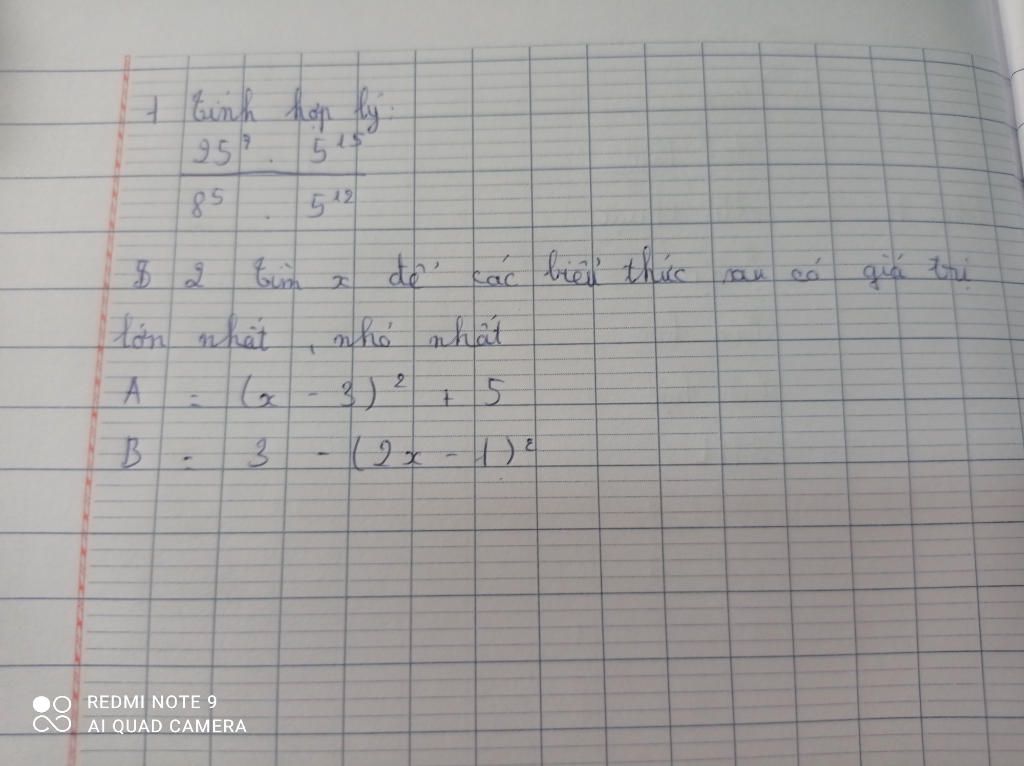 1 Tính hợp lý:
25⁷ . 5¹⁵
8⁵ . 5¹²
2 tìm x để các biểu thức sau có giá trị
lớn nhất, nhỏ nhất
A = (x - 3)² + 5
B = 3 - (2x - 1)²
REDMI NOTE 9
AI QUAD CAMERA